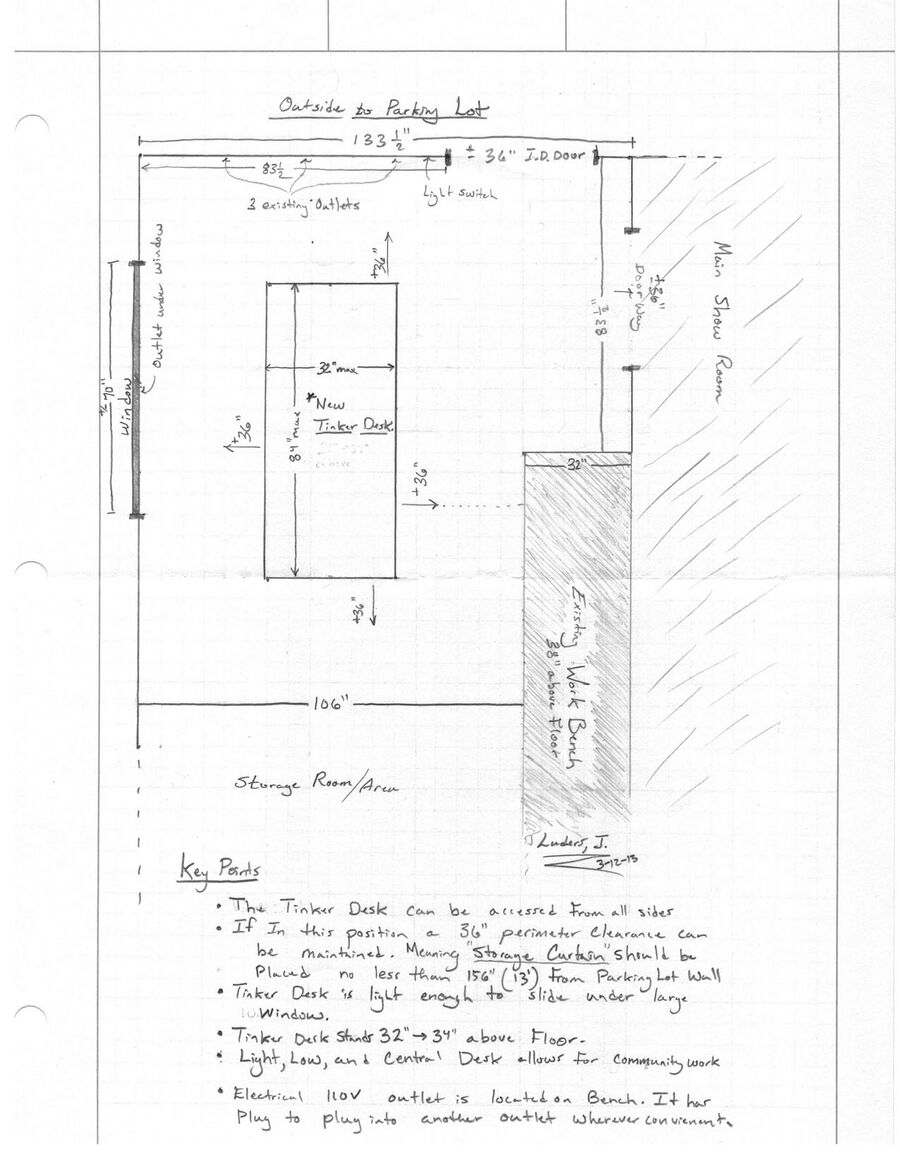 Outside to Parking Lot
133 1/2"
± 36" I.D. Door
83 1/2
3 existing Outlets
Light Switch
Outlet under window
+36"
Main Show Room
±36"
Door Way
88 1/2"
32" max
*New
Tinker Desk.
84" max
±70"
Window
+36"
+36"
32"
+36"
Existing Work Bench
38" above Floor
106"
Storage Room/Area
Luders, J.
3-12-13
Key Points
• The Tinker Desk can be accessed from all sides
• If In this position a 36" perimeter clearance can
be maintained. Meaning "Storage Curtain" should be
Placed no less than 156" (13') from Parking Lot Wall
• Tinker Desk is light enough to slide under large
Window.
• Tinker Desk Stands 32" → 34" above Floor.
• Light, Low, and Central Desk allows for community work
• Electrical 110V outlet is located on Bench. It has
Plug to plug into another outlet wherever convienent.